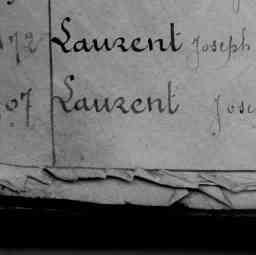 72 Laurent Joseph
07 Laurent Jose